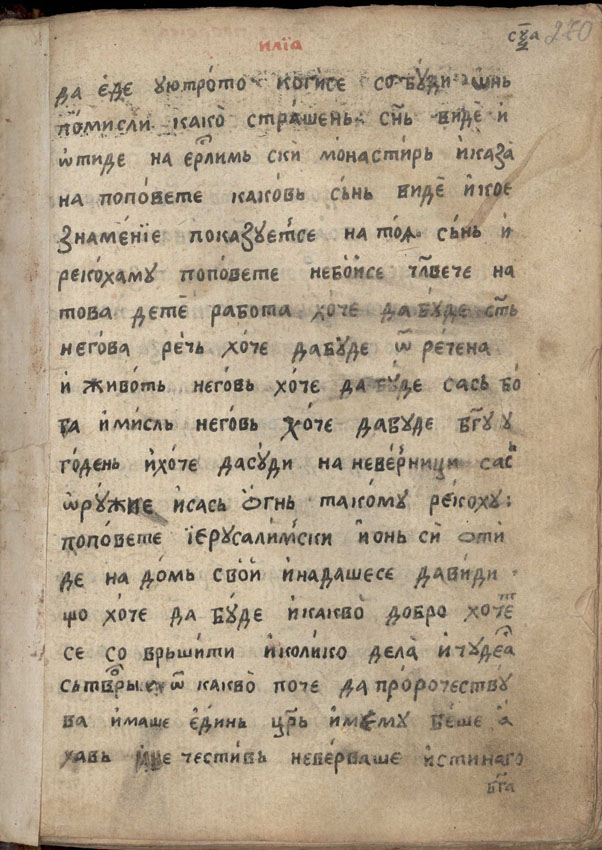 илїа
270
да еде уютрото когисе собуди ѡнь
помисли како страшень снь виде и
ѿтиде на ерлимь ски монастирь иказа
на поповете каковь сьнь виде икое
знаменїе показуетсе на тоѧ сьнь и
рекохаму поповете небоисе члвече на
това дете работа хоче да буде стъ
негова речь хоче дабуде ѿ речена
и животь неговь хоче да буде сась бо
га имисль неговь хоче дабуде бгу у
годень ихоче дасуди на неверници сас
ѡружие исась огнь такому рекоху:
поповете їерусалимски ионь си оти
де на домь свои инадашесе давиди
що хоче да буде икакво добро хоче
се со вршити иколико дела ичудеса
ѿ какво поче да пророчеству
ва имаше единь црь имему беше а
хавь честивь неверваше истинаго
бга